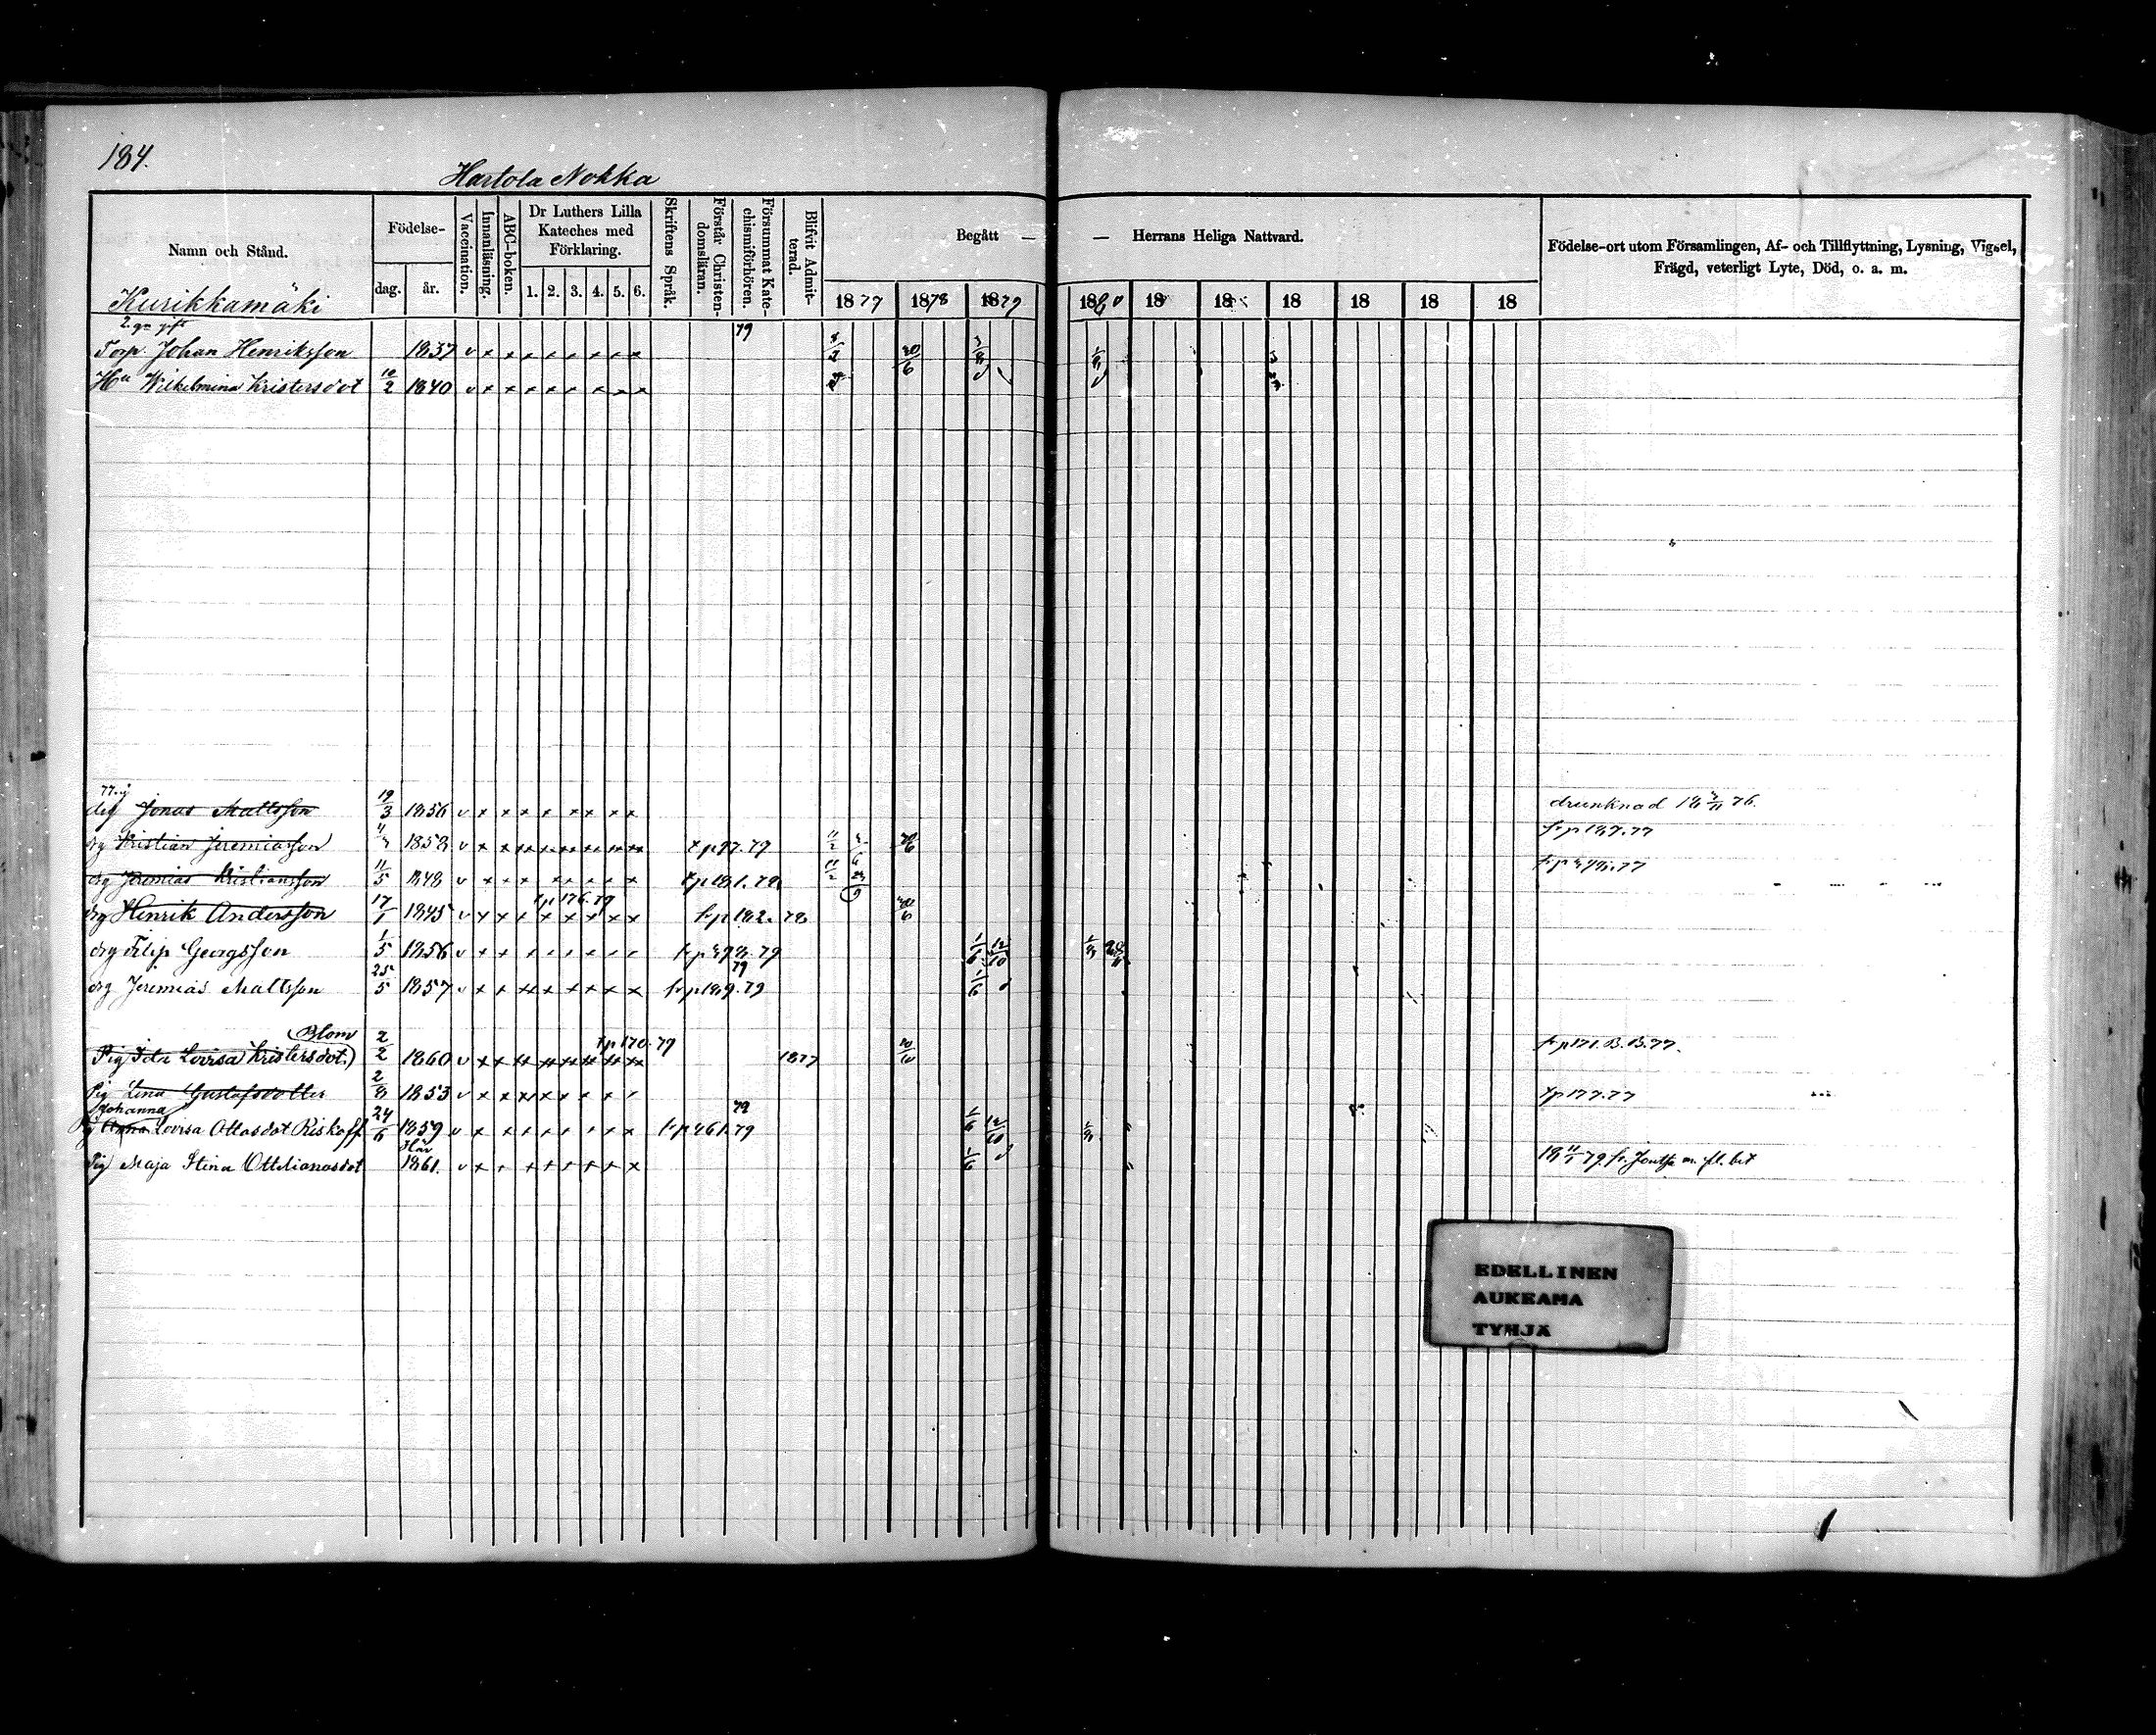 184.
Hartola Nokka
Namn och Stånd.
Födelse-
dag. år.
Vaccination.
Innanläsning.
ABC-boken.
Dr Luthers Lilla
Kateches med
Förklaring.
1. 2. 3. 4. 5. 6.
Skriftens Språk.
Förstår Christen-
domsläran.
Försummat Kate-
chismiförhören.
Blifvit Admit-
terad.
Begått — — Herrans Heliga Nattvard.
1877 1878 1879 1880 18 18 18 18 18 18
Födelse-ort utom Församlingen, Af- och Tillflyttning, Lysning, Vigsel,
Frägd, veterligt Lyte, Död, o. a. m.
Kurikkamäki
2 gn gift 79
Torp. Johan Henriksson 1837 v x x x x x x x x
Hu Wilhelmina Kristersdot 10/2 1840 v x x x x x x x x
Jonas Mattsson 19/3 1856 v x x x x x x x x drunknad 76.
drg Kristian Jeremiasson 1858 v x x 79 fr p 189.77
drg Jeremias Kristiansson 11/5 1848 v x x x 77
t p 176.79
drg Henrik Andersson 17/1 1845 v x x x x x x x x fr p 182. 78 30/6
drg Filip Georgsson 1/5 1856 v x x 79 1/6 12/10
79
drg Jeremias Mattsson 25/5 1857 v x x fr p 189.79 1/6
(Blom t p 170.79
Pig Ida Lovisa Kristersdot.) 2/2 1860 v x x 1877 fr p 171.B.B.77.
Pig Lena Gustafsdotter 2/8 1853 v x x t p 177.77
Johanna 79
Pig Anna Lovisa Ottosdot Riskoff 24/6 1859 v x x fr p 461.79 1/6 12/10
Här
Pig Maja Stina Ottilianasdot 1861. v x 1/6 79 fr. Joutsa m. fl. bet
EDELLINEN
AUKEAMA
TYHJÄ